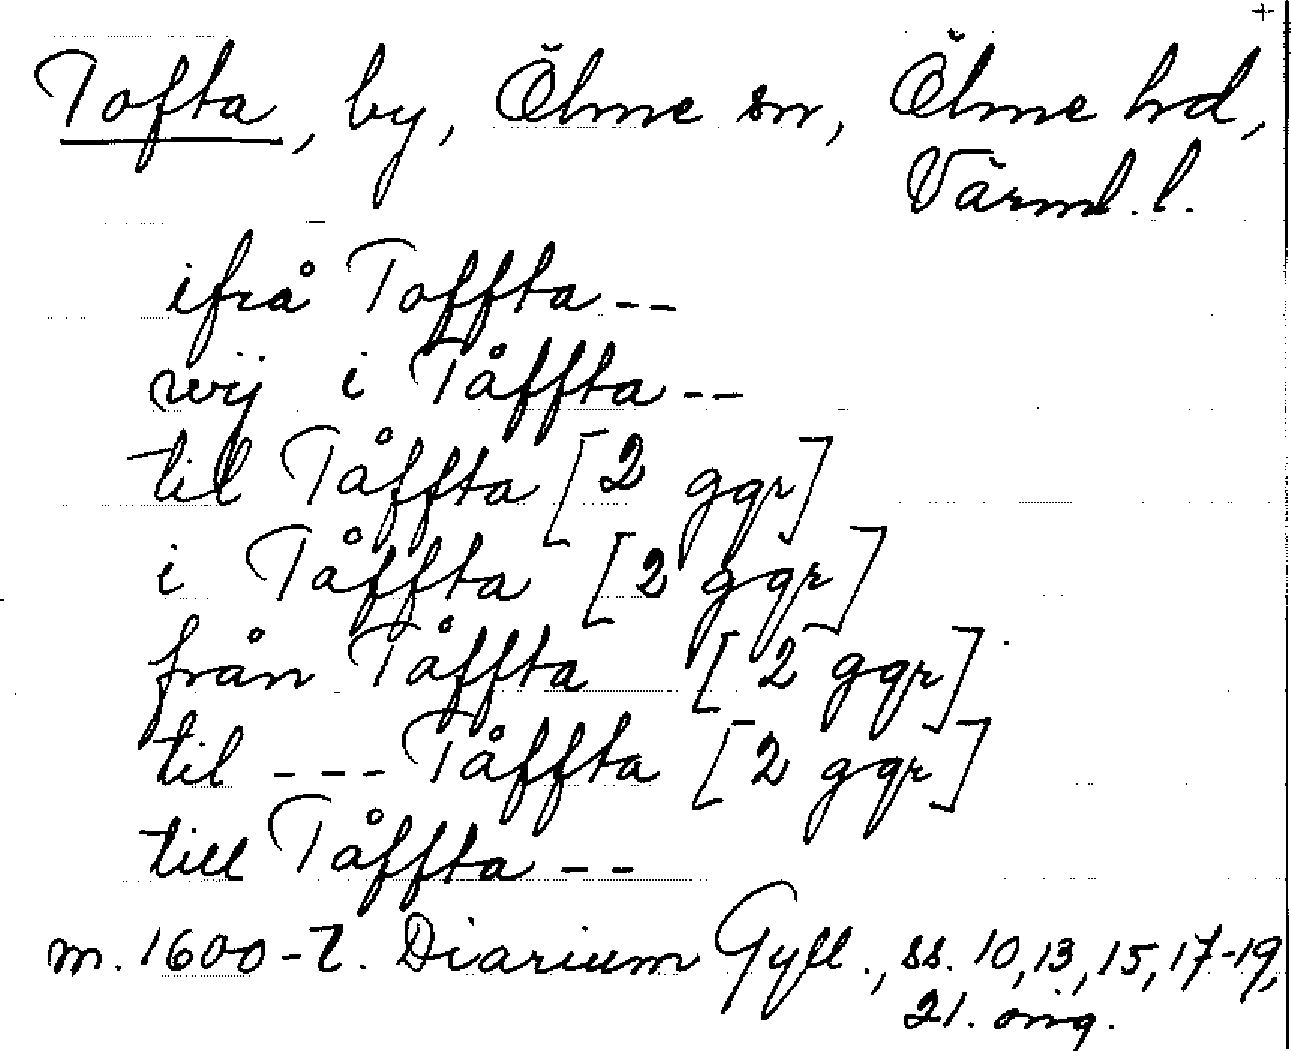 +
Tofta, by, Ölme sn, Ölme hd,
Värml. l.
ifrå Toffta --
wij i Tåffta --
til Tåffta [2 ggr]
i Tåffta [2 ggr]
från Tåffta [2 ggr]
til --- Tåffta [2 ggr]
till Tåffta --
m. 1600-t. Diarium Gyll., ss. 10, 13, 15, 17-19,
21. orig.